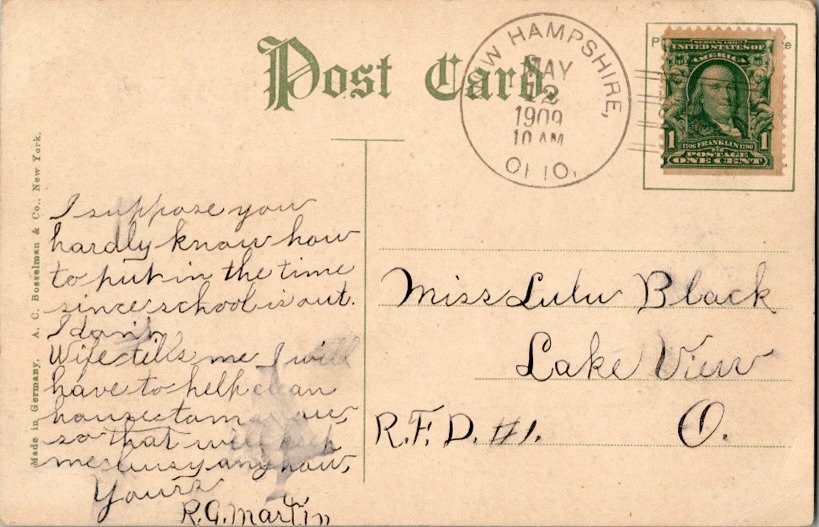 Post Card.
NEW HAMPSHIRE,
MAY
12
1909
10 AM
OHIO.
SERIES 1902
UNITED STATES OF
AMERICA
1706 FRANKLIN 1790
1 POSTAGE 1
ONE CENT
Made in Germany. A. C. Bosselman & Co., New York.
I suppose you
hardly know how
to put in the time
since school is out.
I don't.
Wife tells me I will
have to help clean
house tomorrow,
so that will keep
me busy anyhow,
Yours
R.G. Martin
Miss Lulu Black
Lake View
R.F.D. #1. O.